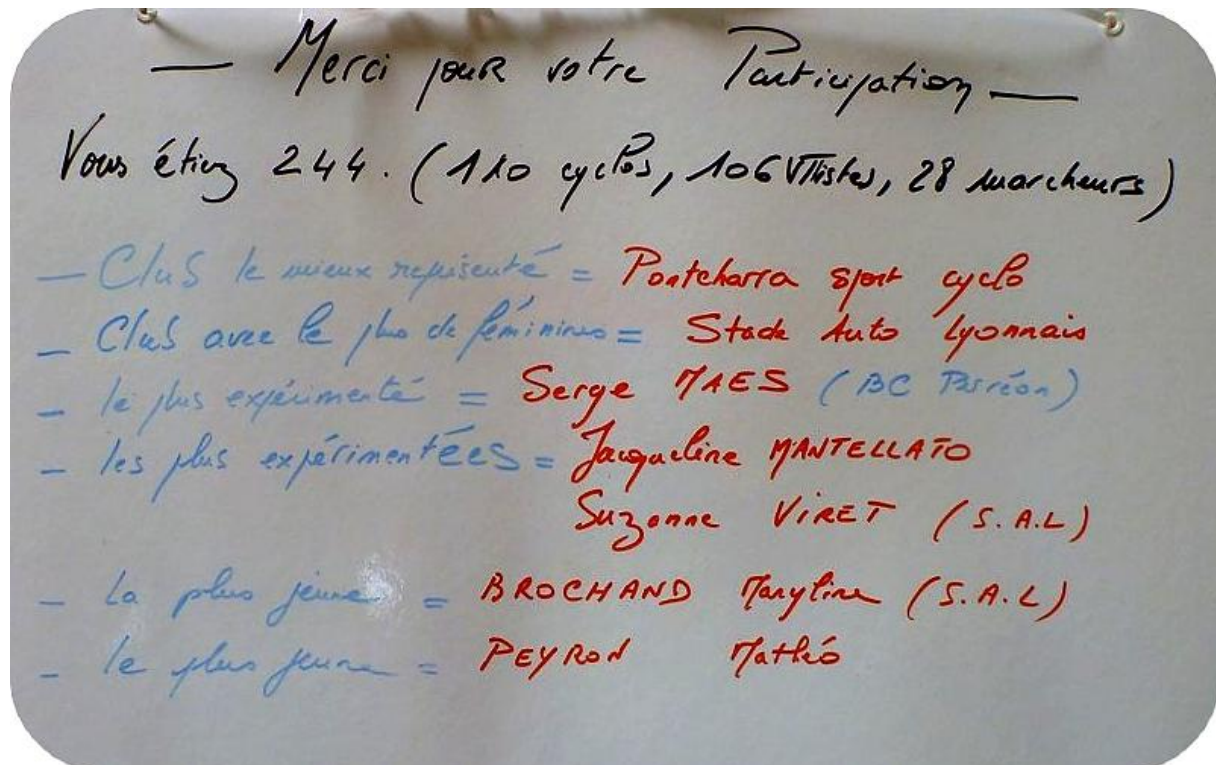 — Merci pour votre Participation —
Vous étiez 244. (110 cyclos, 106 VTTistes, 28 marcheurs)
— Club le mieux représenté = Pontcharra sport cyclo
— Club avec le plus de féminines = Stade Auto Lyonnais
— le plus expérimenté = Serge MAES (BC Poiséon)
— les plus expérimentées = Jacqueline MANTELLATO
Suzanne VIRET (S.A.L)
— La plus jeune = BROCHAND Maryline (S.A.L)
— le plus jeune = PEYRON Mathéo